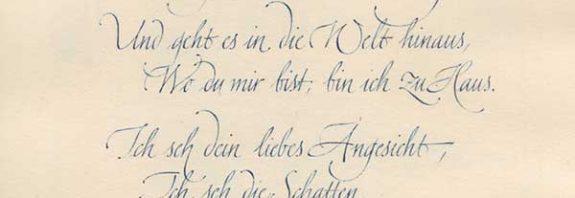 Und geht es in die Welt hinaus,
Wo du mir bist, bin ich zu Haus.
Ich seh dein liebes Angesicht,
Ich seh die Schatten